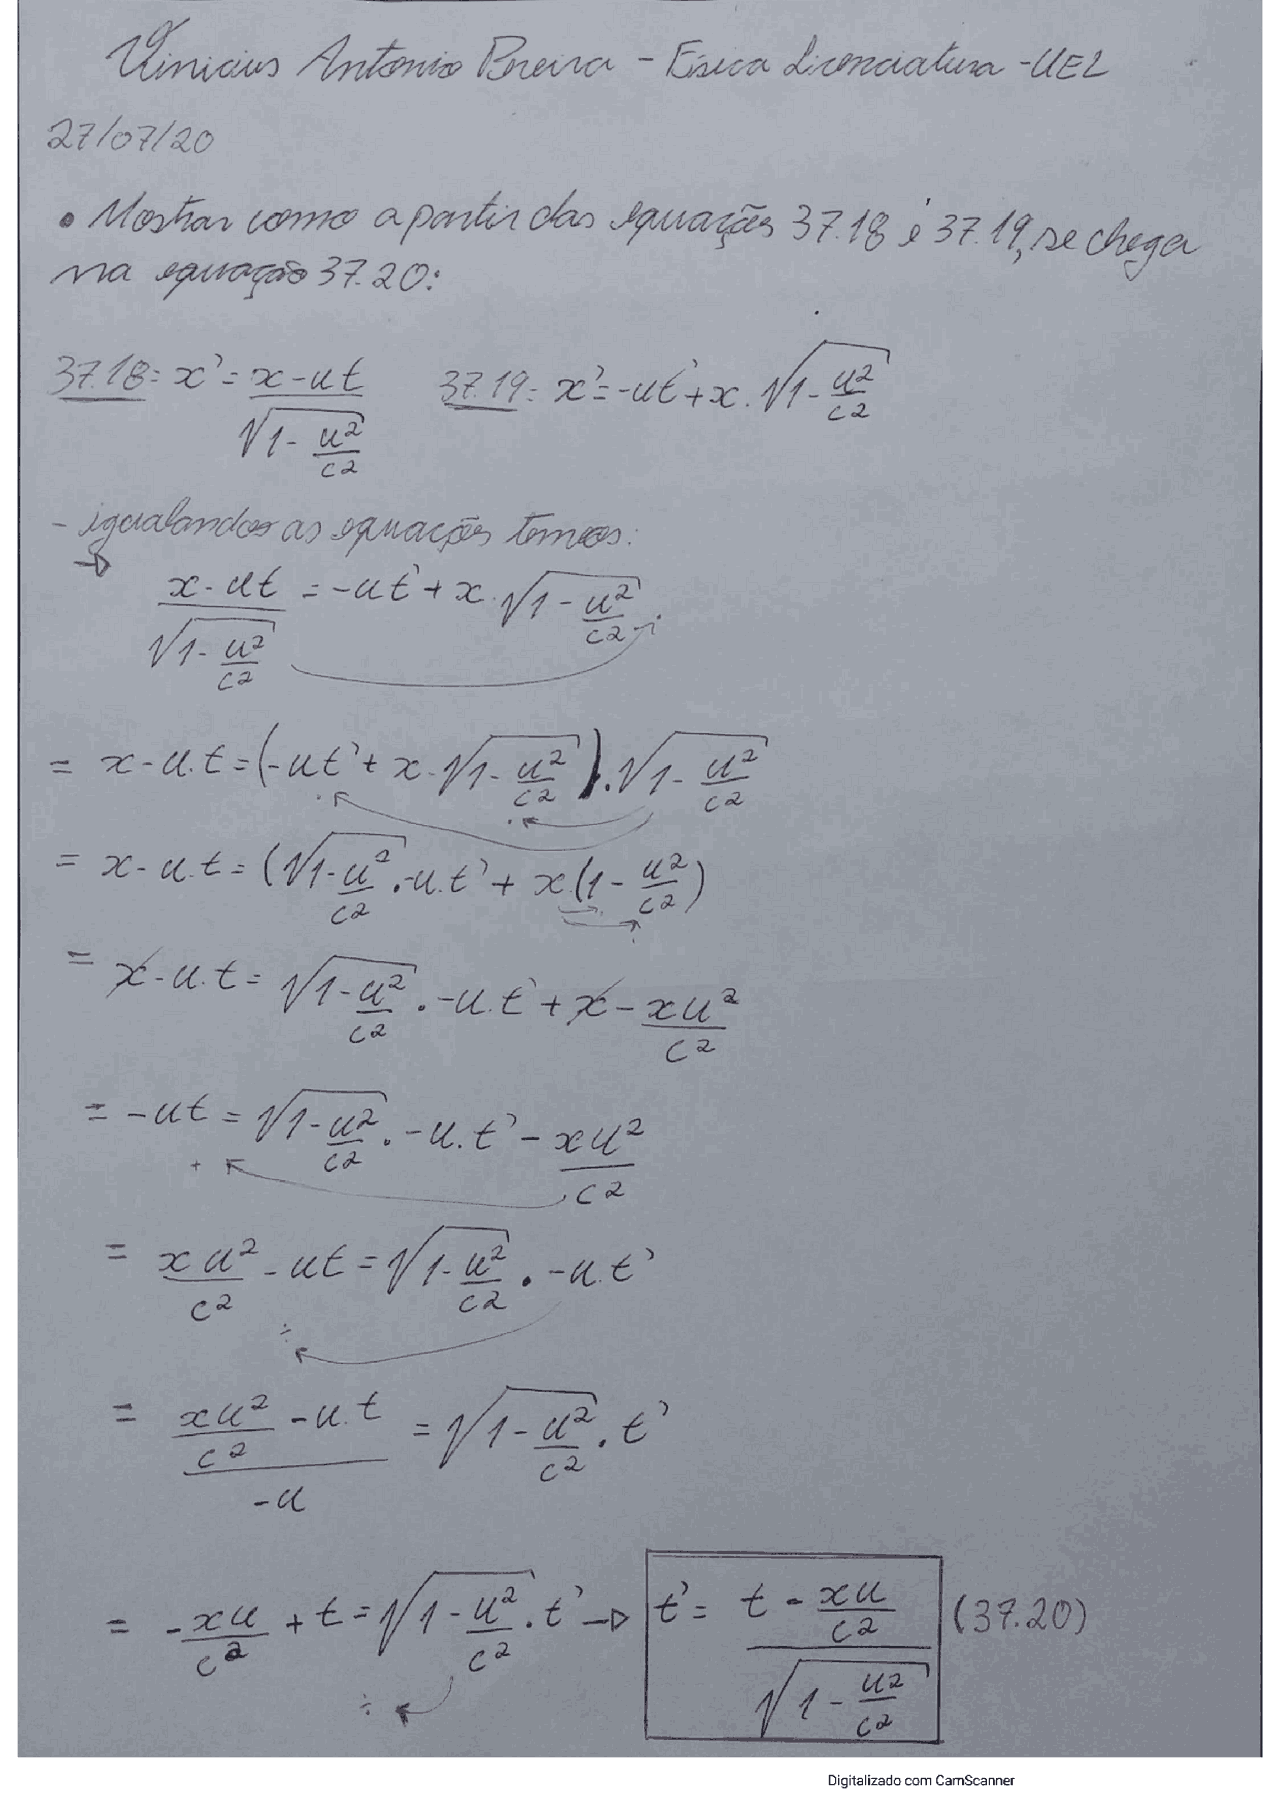 Vinicius Antonio Pereira - Física Licenciatura - UEL
27/07/20
• Mostrar como a partir das equações 37.18 e 37.19, se chega
na equação 37.20:
37.18 = x' = (x - ut) / √(1 - u²/c²)    37.19 = x' = -ut' + x . √(1 - u²/c²)
- igualandos as equações temos:
→ (x - ut) / √(1 - u²/c²) = -ut' + x . √(1 - u²/c²)
= x - u.t = (-ut' + x . √(1 - u²/c²)) . √(1 - u²/c²)
= x - u.t = (√(1 - u²/c²) . -u.t' + x.(1 - u²/c²)
= x - u.t = √(1 - u²/c²) . -u.t' + x - xu²/c²
= -ut = √(1 - u²/c²) . -u.t' - xu²/c²
= xu²/c² - ut = √(1 - u²/c²) . -u.t'
= (xu²/c² - u.t) / -u = √(1 - u²/c²) . t'
= -xu/c² + t = √(1 - u²/c²) . t' → t' = (t - xu/c²) / √(1 - u²/c²) (37.20)
Digitalizado com CamScanner